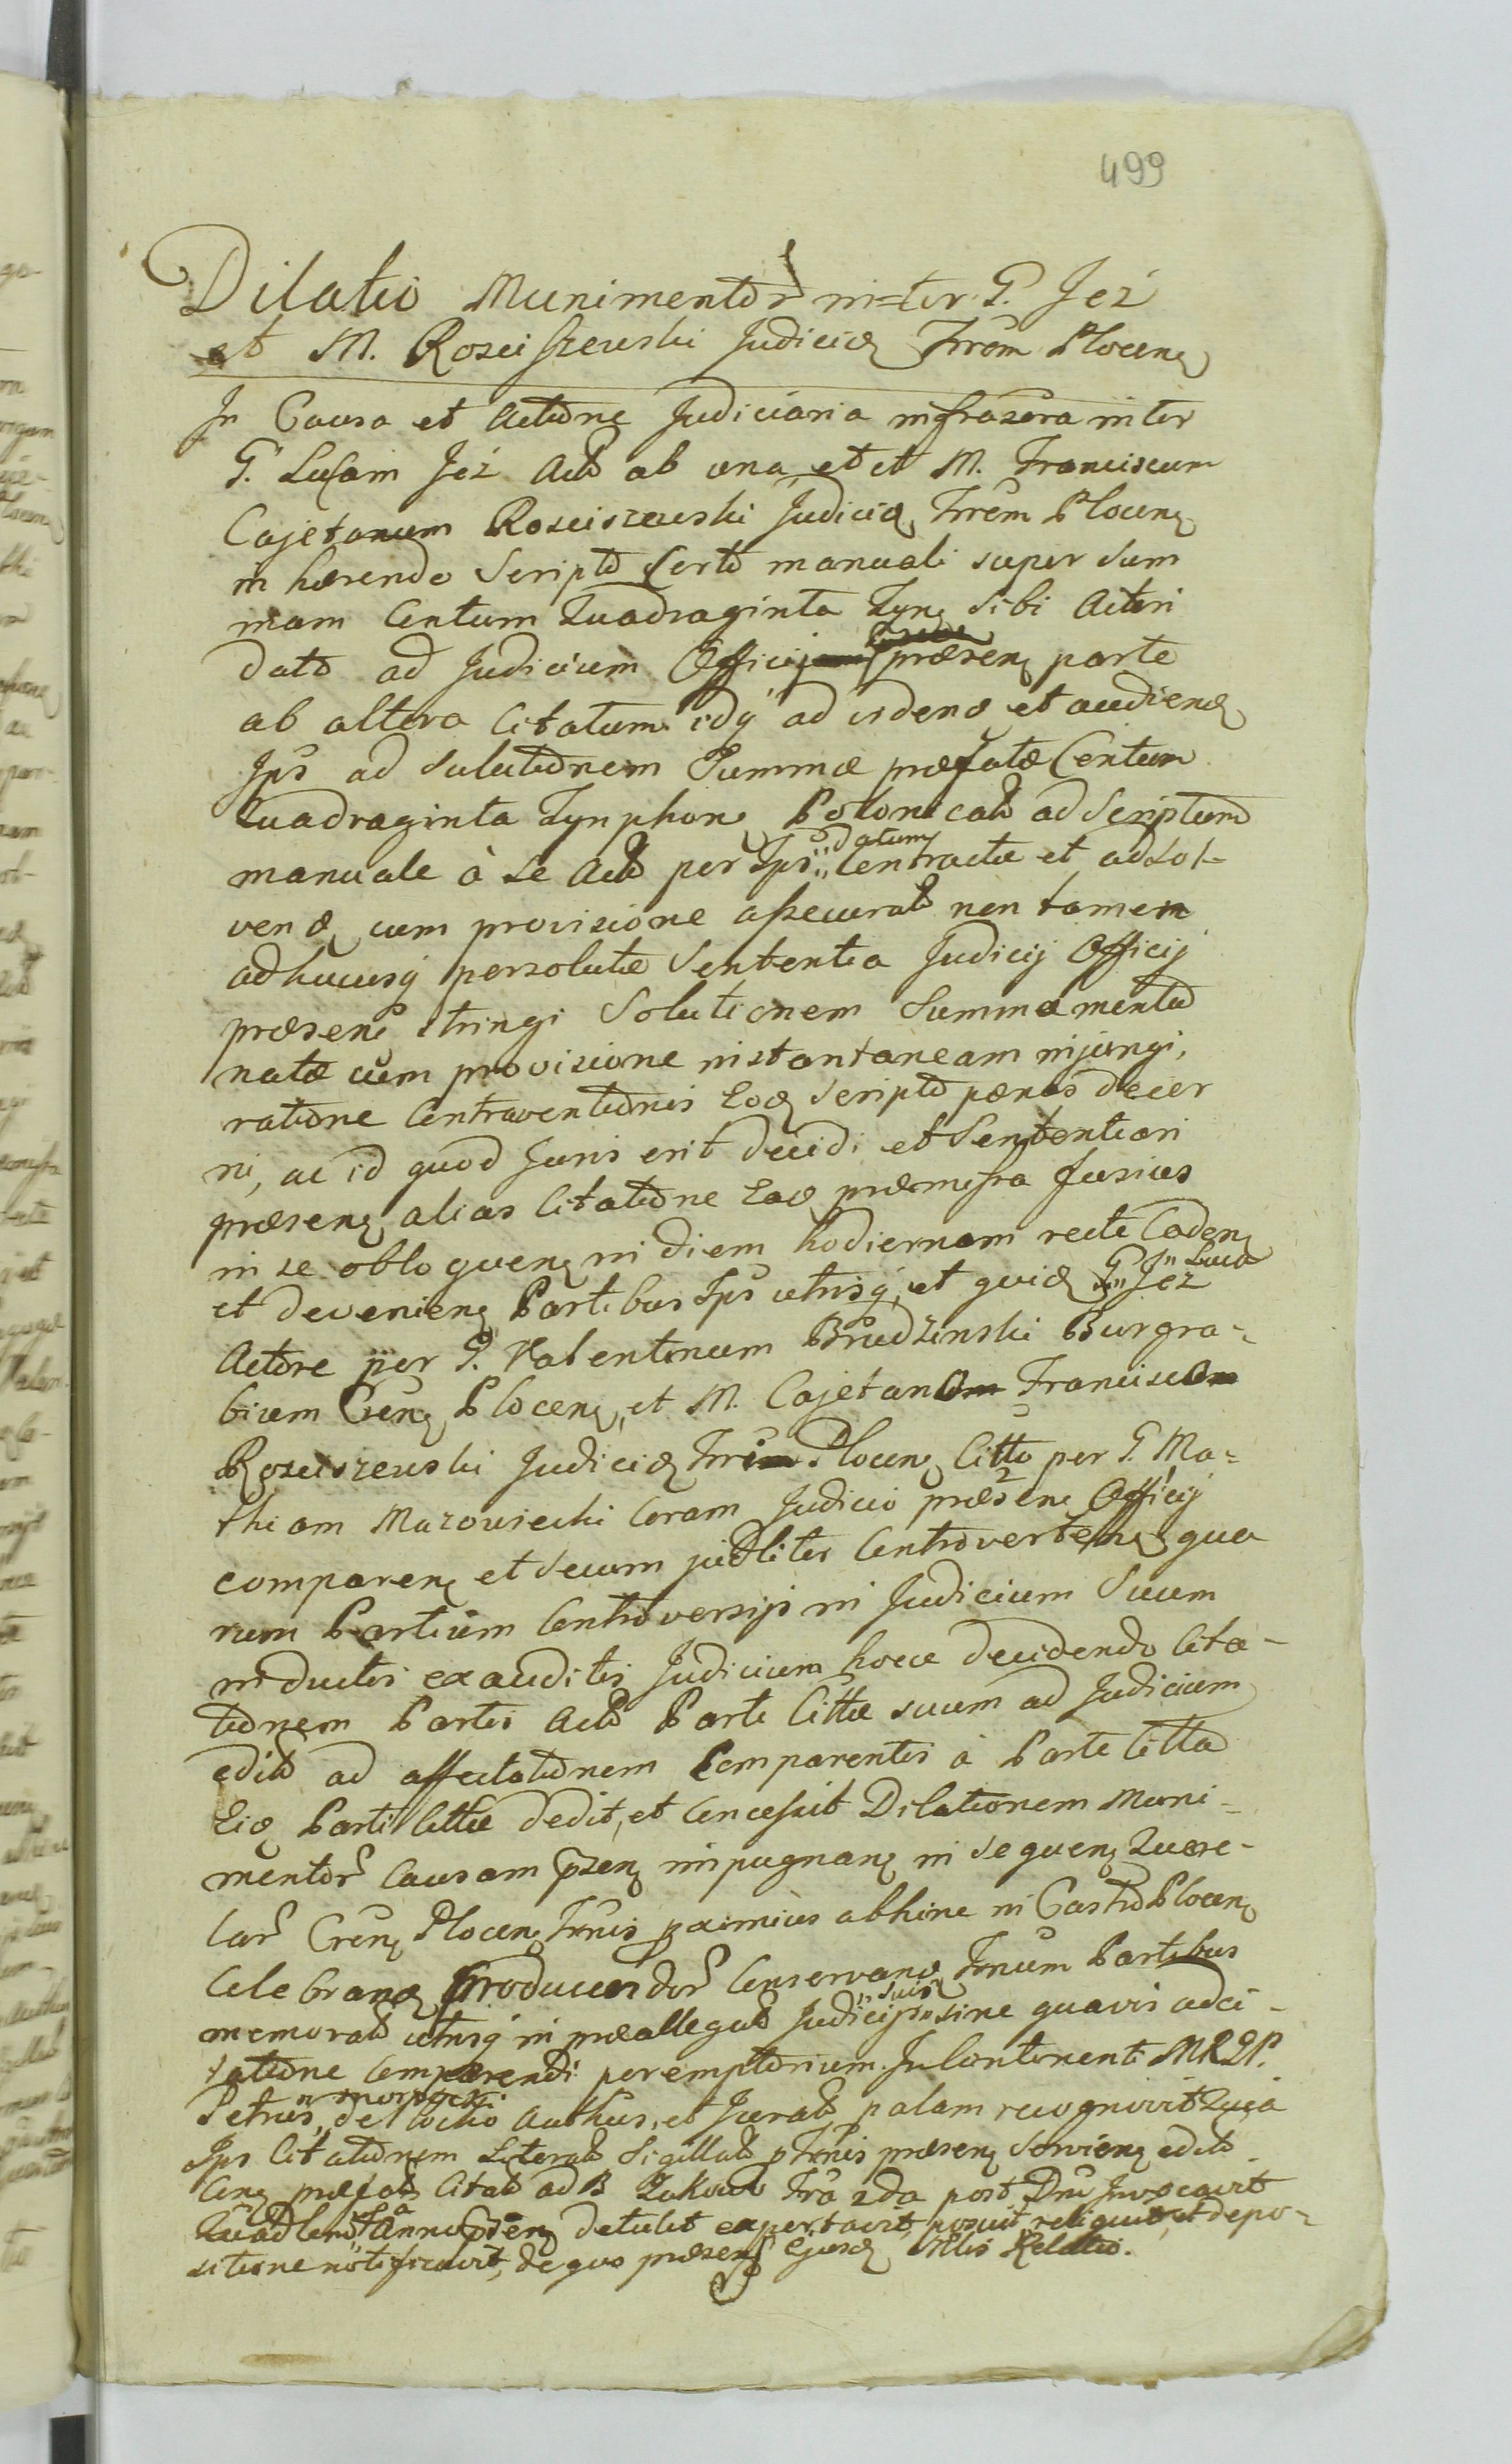 499
Dilatio Munimentor inter G. Jeż
et M. Rosciszewski Judicid Trrem Plocen
In Causa et Actione Judiciaria infrascra inter
G. Lucam Jeż Act ab una, et et M. Franciscum
Cajetanum Rosciszewski Judicid Trrem Plocen
in hærendo Scripto Certo manuali super Sum
mam Centum Quadraginta Tyn Sibi Actori
dato ad Judicium Officij præsen parte
ab altera Citatum idq ad vidend et audiend
Ips ad Solutionem Summæ præfatæ Centum
Quadraginta Tynphon Polonicat ad Scriptum
manuale à se Act per Ips datum Contractæ et adsol-
vend cum provisione assecurat non tamen
adhucusq persolutæ Sententia Judicij Officij
præsen stringi Solutionem Summæ mentio
natæ cum provisione instantaneam injungi,
ratione Contraventionis Eod Scripto pænas decer
ni, ac id quod Juris erit decidi et Sententiari
præsen alias Citatione Ead præmissa fusius
in se obloquen in diem hodiernam recte Caden
et devenien Partibus Ips utrisq, et quid G. Luca Jeż
Actore per G. Valentinum Brudzinski Burgra-
bium Cren Plocen, et M. Cajetano Francisco
Rosciszewski Judicid Trrm Plocen Citto per G. Ma-
thiam Mazowiecki Coram Judicio præsen Officij
comparen et Secum judliter Controverten qua
rum Partium Controversijs in Judicium Suum
inductis exauditis Judicium hocce decidendo Cita-
tionem Partis Act Parti Cittæ suum ad Judicium
edit ad affectationem Comparentis à Parte Citta
Eid Parti Cittæ dedit, et Concessit Dilationem Muni-
mentor Causam pzen impugnan in Sequen Quære-
lar Cren Plocen Trnis pximius abhinc in Castro Plocen
Celebrand Producendor Conservand Trnum Partibus
memorat utrisq in præallegat Judicijs suis sine quavis adci-
tatione Comparendi peremptorium. In Continenti MRGP.
Petrus de Authus, et Jurat palam recognovit Quia
Ips Citationem Literat Sigillat p Trnis præsen Servien edit
Cen præfat Citat ad B Trâ 2da post Dnc Invocavit
Quadlem Anni pzen detulit exportavit, posuit reliquit, et depo-
sitione notificavit, de quo præsen Ejusd Relatio.